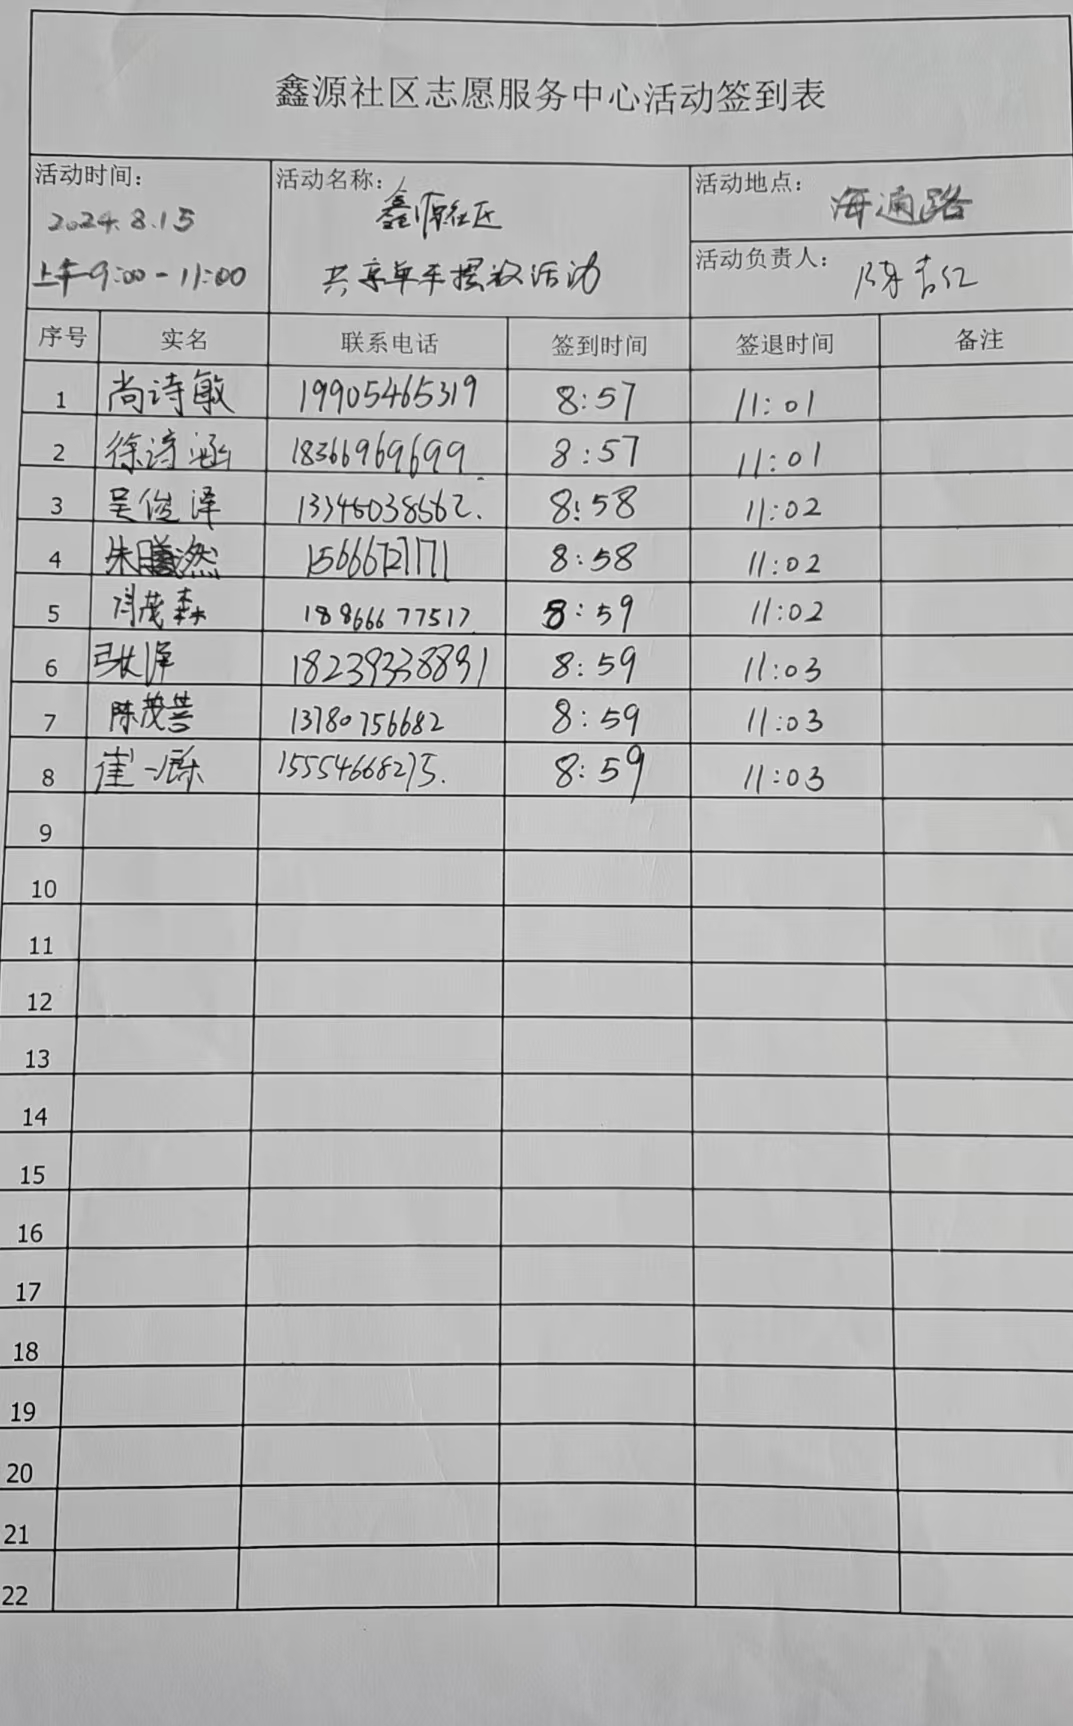 鑫源社区志愿服务中心活动签到表
活动时间: 活动名称: 活动地点: 海通路
2024.8.15 鑫源社区
上午9:00-11:00 共享单车摆放活动 活动负责人: 陈吉红
序号 实名 联系电话 签到时间 签退时间 备注
1 尚诗敏 19905465319 8:57 11:01
2 徐诗涵 18366969699 8:57 11:01
3 吴俊泽 8:58 11:02
4 朱 然 15666727171 8:58 11:02
5 闫茂森 18866677517 8:59 11:02
6 张泽 18239338891 8:59 11:03
7 陈茂善 13780756682 8:59 11:03
8 崔一 15554668275. 8:59 11:03
9
10
11
12
13
14
15
16
17
18
19
20
21
22